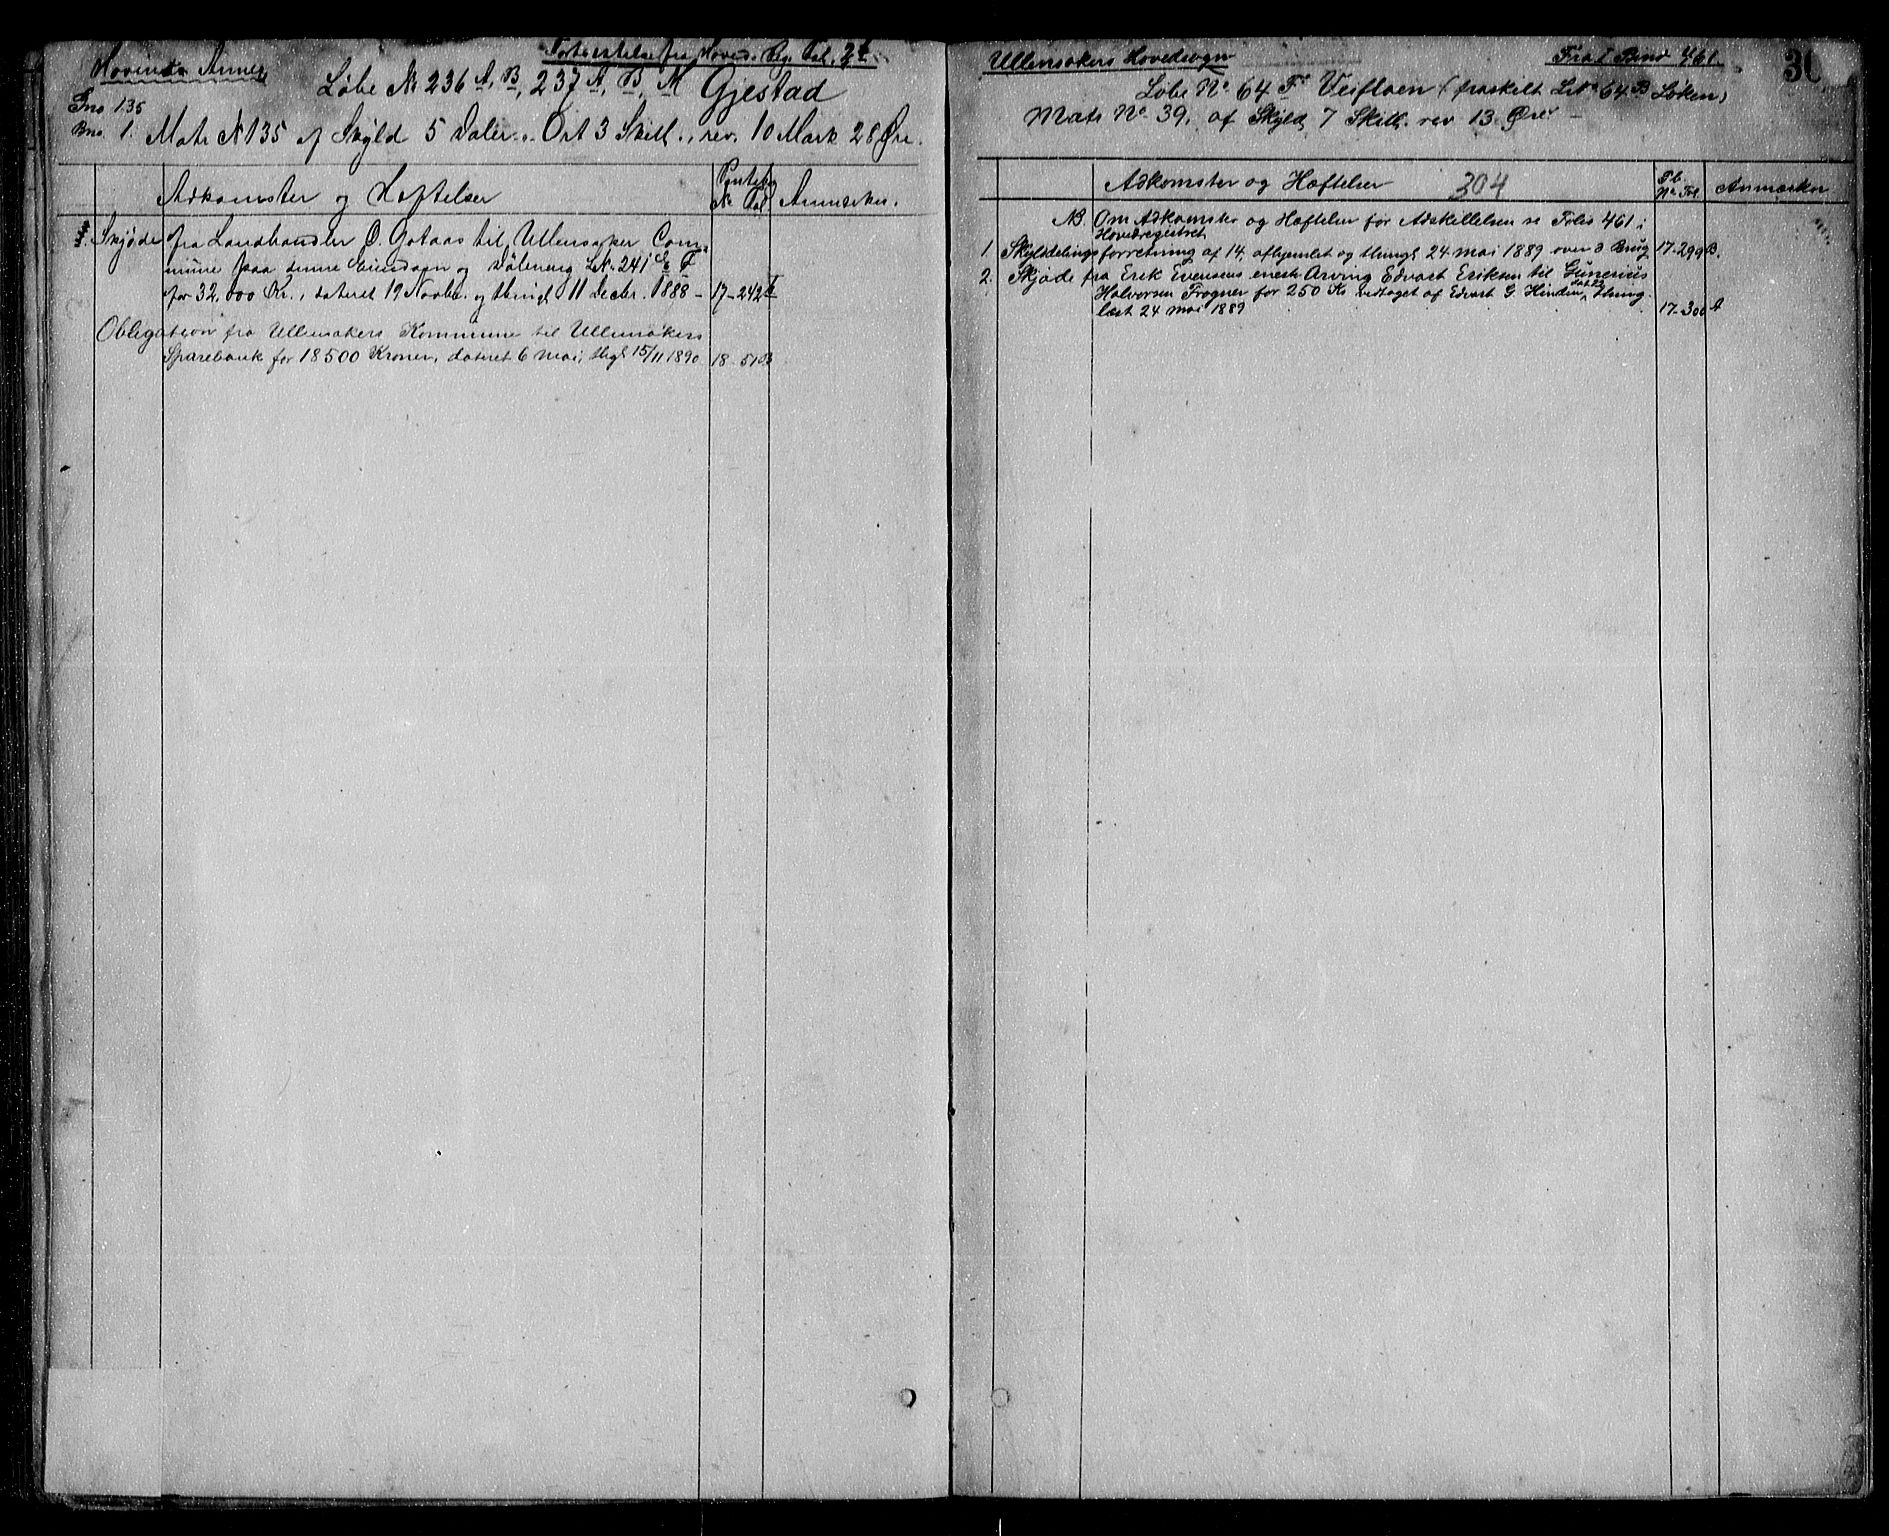 Hovinds Annex
Fortsættelse fra Hoved. Reg. Fol.
Løbe No 236 A, B, 237 A, B, M Gjestad
Gno 135
Bno 1. Matr No 135 af Skyld 5 Daler " Ort 3 Skill., rev. 10 Mark 28 Øre.
Adkomster og Hæftelser
Pantebog
No Fol
Anmærkn.
Skjøde fra Landhandler O. Gotaas til Ullensaker Com-
mune paa denne Eiendom og LNo 241 E F
for 32,000 Kr., dateret 19 Novbr. og thingl 11 Decbr. 1888 - 17-242
Obligation fra Ullensakers Kommune til Ullensakers
Sparebank for 18500 Kroner, dateret 6 mai, thgl 15/11 1890 18-51
Ullensakers Hovedsogn
Fra I Bind 461
30
Løbe No 64 F Veifloen (fraskilt LNo 64 B Løken)
Matr No 39, af Skyld 7 Skill. rev 13 Øre
Adkomster og Hæftelser 304
P.b.
No Fol.
Anmærkn
NB. Om Adkomster og Hæftelser før Adskillelsen se Folio 461 i
Hovedregistret
1 Skylddelingsforretning af 14, afhjemlet og thingl 24 mai 1889 over d Brug 17-299 B.
2. Skjøde fra Erik Evensens eneste Arving Edvart Eriksen til Gunerius
Halvorsen Frogner for 250 Kr vedtaget af Edvart G. Hinden, dat 22, thing-
læst 24 mai 1889 17-300 A